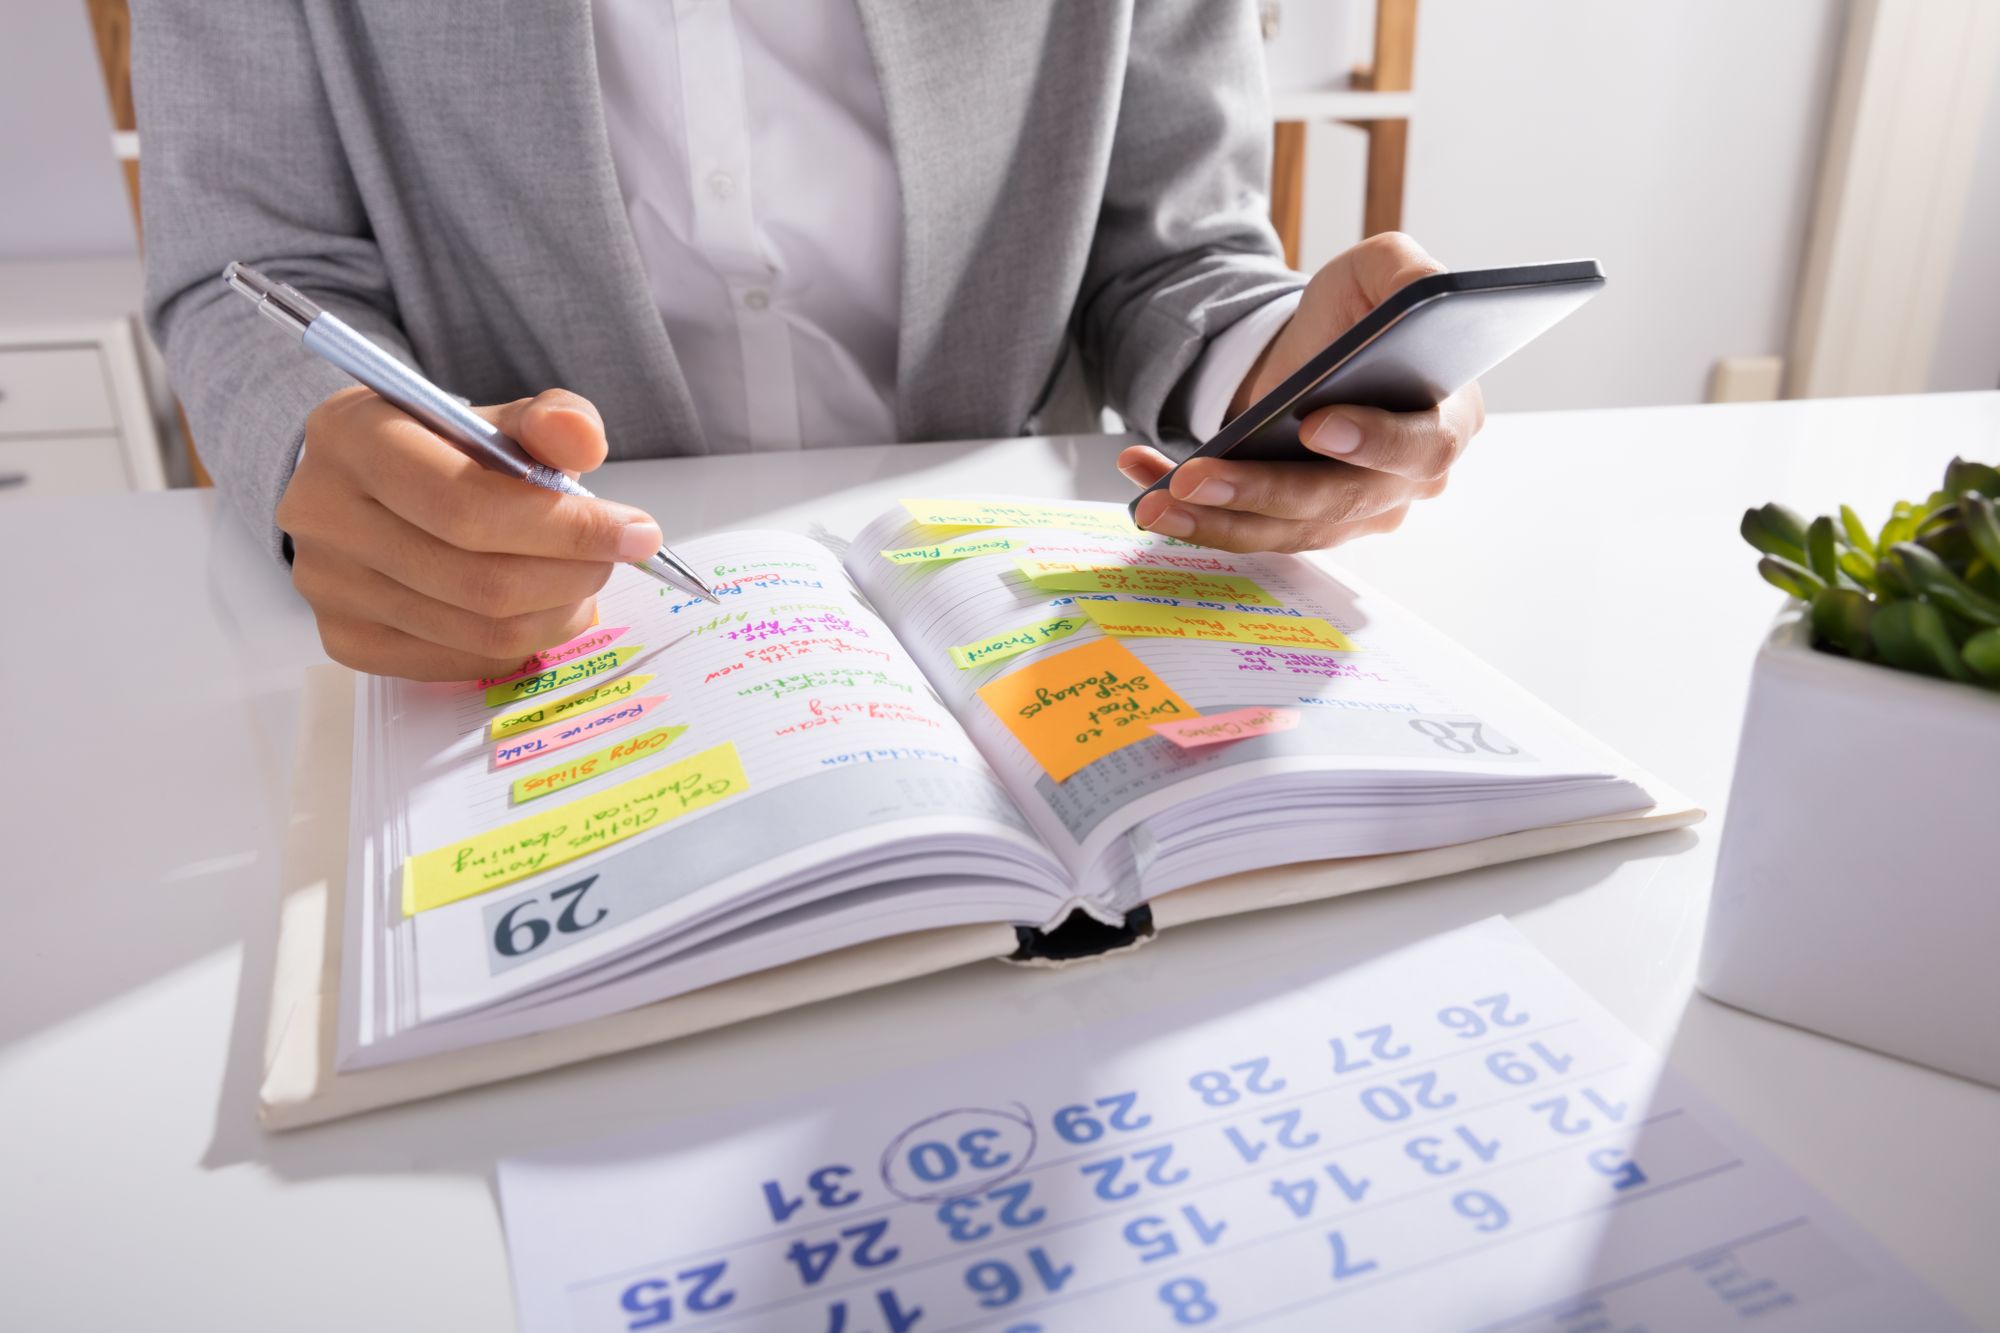 28
Meditation
Introduce new
Manager to
Colleagues
Drive
Post to
Ship
Packages
Prepare new Milestone
Project Plan
Set Priorit
Pickup Car from Dealer
Select Service
Providers for
Review and Test
Review Plans
Dinner with Clients
Reserve Table
29
Meditation
Weekly team
meeting
New Project
Presentation
Lunch with new
Investors
Real Estate
Agent Appt.
Dentist Appt.
Finish Report
Swimming
Get Clothes from
Chemical cleaning
Copy Slides
Reserve
Table
Prepare Docs
Follow up
with Dev
Update
5
6
7
8
12
13
14
15
16
17
19
20
21
22
23
24
25
26
27
28
29
30
31